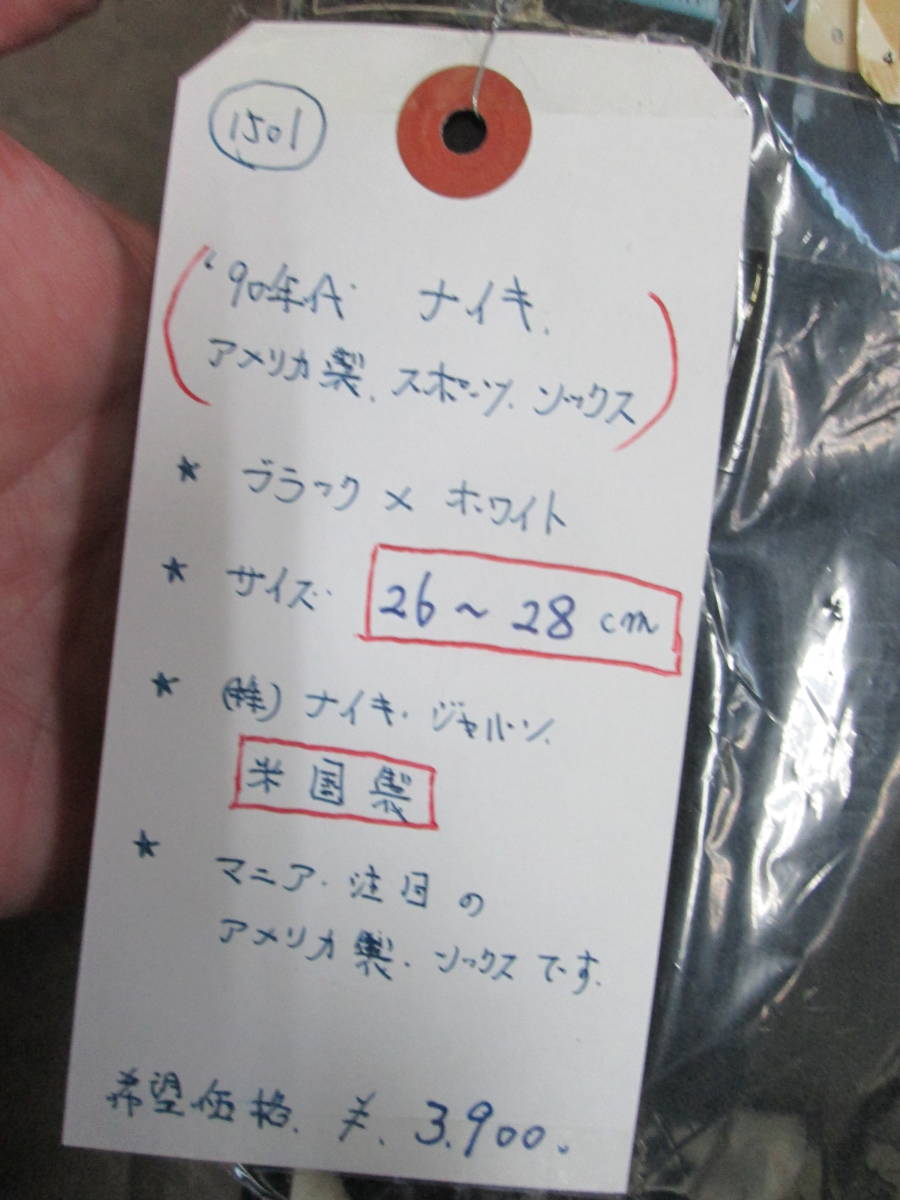 1501
'90年代. ナイキ.
アメリカ製. スポーツ. ソックス
★ ブラック × ホワイト
★ サイズ. 26 ~ 28 cm
★ (株) ナイキ. ジャパーン.
米国製
★ マニア. 注目の
アメリカ製. ソックスです.
希望価格. ¥. 3.900.